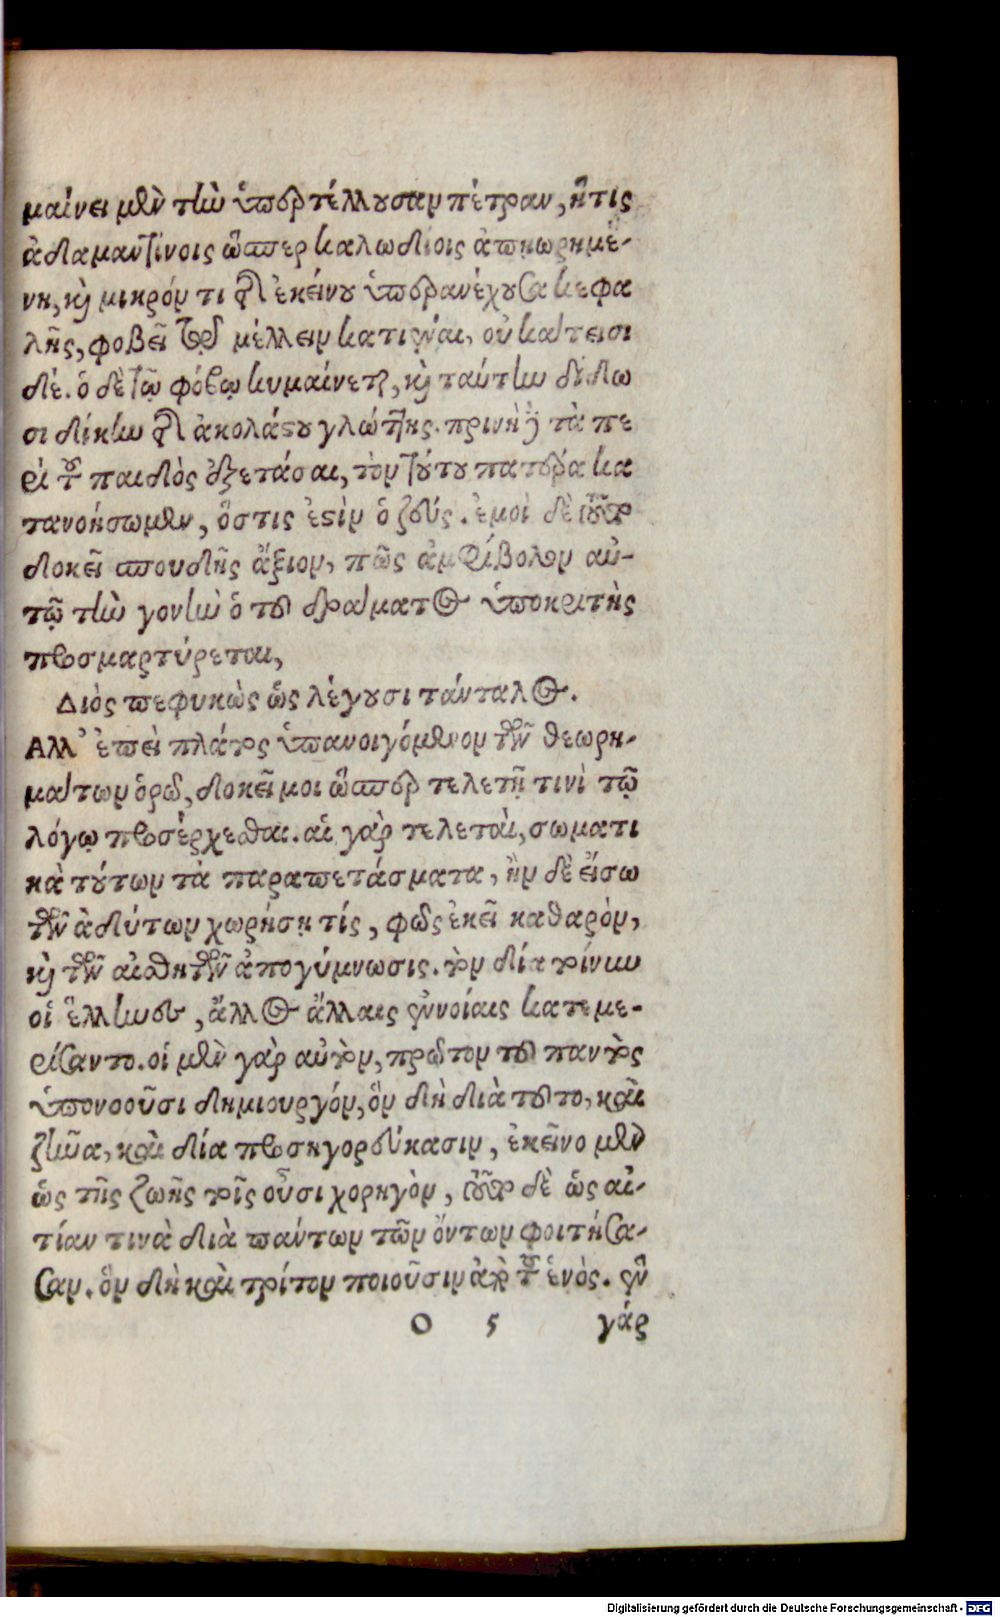 μαίνει μὲν τὴν ὑπερτέλλουσαν πέτραν, ἥτις
ἀδαμαντίνοις ὥσπερ καλωδίοις ἀπῃωρημέ-
νη, καὶ μικρόν τι τῆς ἐκείνου ὑπερανέχουσα κεφα
λῆς, φοβεῖ μέλλειν κατιέναι, οὐ κάτεισι
δέ. ὁ δὲ τῷ φόβῳ κυμαίνεται, καὶ ταύτην δίδω
σι δίκην τῆς ἀκολάστου γλώττης. πρινὴ δὲ τὰ πε
ρὶ τοῦ παιδὸς ἐξετάσαι, τὸν τούτου πατέρα κα
τανοήσωμεν, ὅστις ἐστὶν ὁ ζεύς. ἐμοὶ δὲ τοῦτο
δοκεῖ σπουδῆς ἄξιον, πῶς ἀμφίβολον αὐ-
τῷ τὴν γονὴν ὁ τοῦ δράματος ὑποκριτὴς
προσμαρτύρεται,
Διὸς πεφυκὼς ὡς λέγουσι τάνταλος.
Αλλ' ἐπεὶ πλάτος ὑπανοιγόμενον τῶν θεωρη-
μάτων ὁρῶ, δοκεῖ μοι ὥσπερ τελετῇ τινὶ τῷ
λόγῳ προσέρχεσθαι. αἱ γὰρ τελεταὶ, σωματι
κὰ τούτων τὰ παραπετάσματα, ἢν δὲ εἴσω
τῶν ἀδύτων χωρήσῃ τίς, φῶς ἐκεῖ καθαρὸν,
καὶ τῶν αἰσθητῶν ἀπογύμνωσις. τὸν δία τοίνυν
οἱ ἕλληνες, ἄλλος ἄλλαις ἐννοίαις κατεμε-
ρίσαντο. οἱ μὲν γὰρ αὐτὸν, πρῶτον τοῦ παντὸς
ὑπονοοῦσι δημιουργόν, ὃν δὴ διὰ τοῦτο, καὶ
ζῆνα, καὶ δία προσηγορεύκασιν, ἐκεῖνο μὲν
ὡς τῆς ζωῆς τοῖς οὖσι χορηγὸν, τοῦτο δὲ ὡς αἰ-
τίαν τινὰ διὰ πάντων τῶν ὄντων φοιτήσα-
σαν. ὃν δὴ καὶ τρίτον ποιοῦσιν ἀπὸ τοῦ ἑνὸς. ἓν
O 5 γάρ
Digitalisierung gefördert durch die Deutsche Forschungsgemeinschaft - DFG